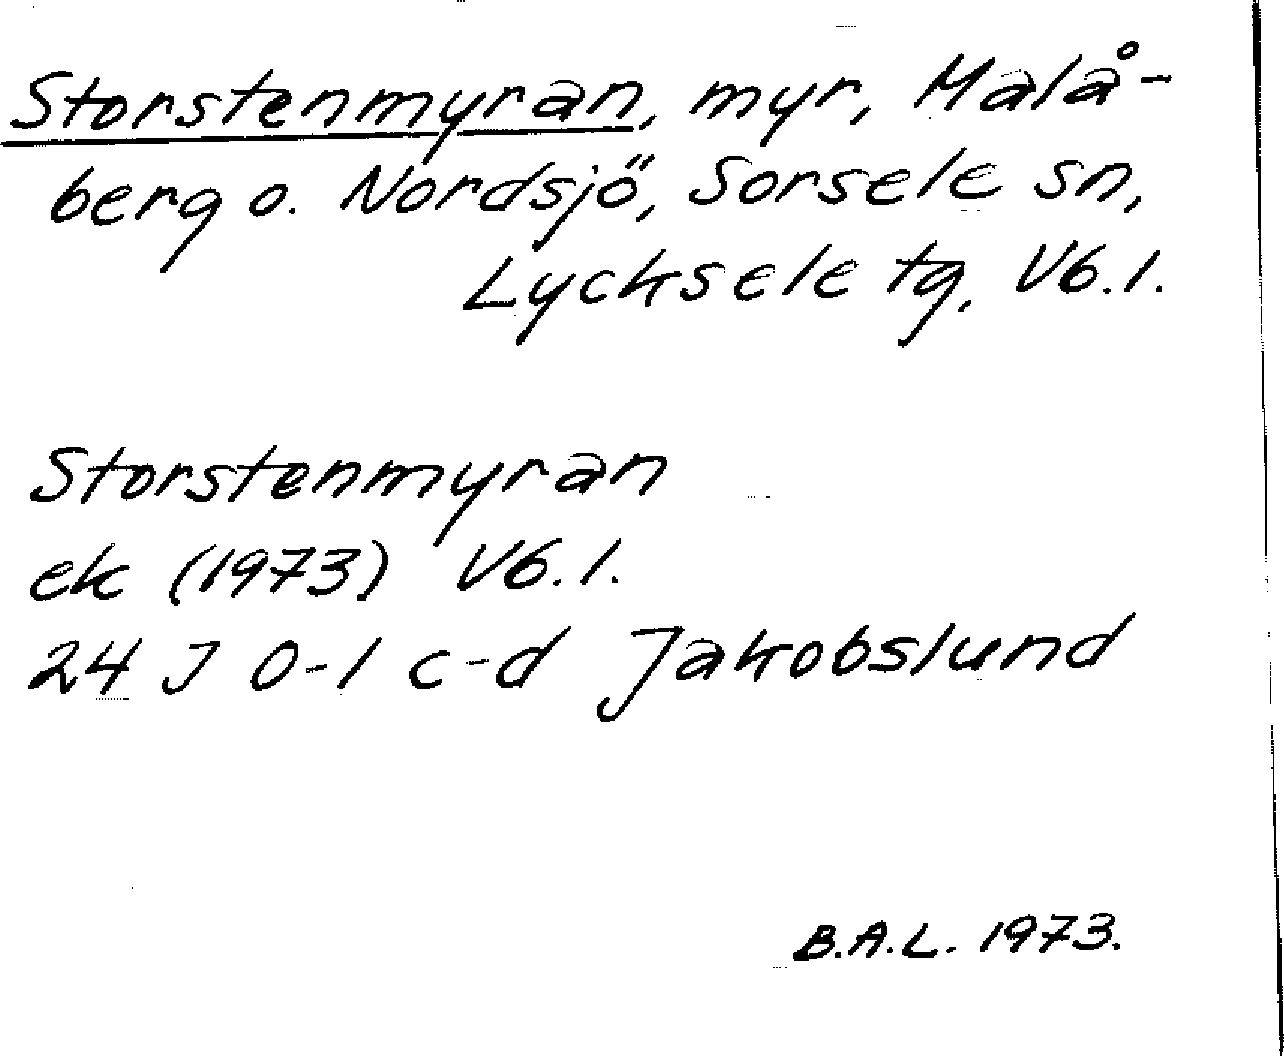 Storstenmyran, myr, Malå-
berg o. Nordsjö, Sorsele sn,
Lycksele tg, V6.1.
Storstenmyran
ek (1973) V6.1.
24 J 0-1 c-d Jakobslund
B.A.L. 1973.